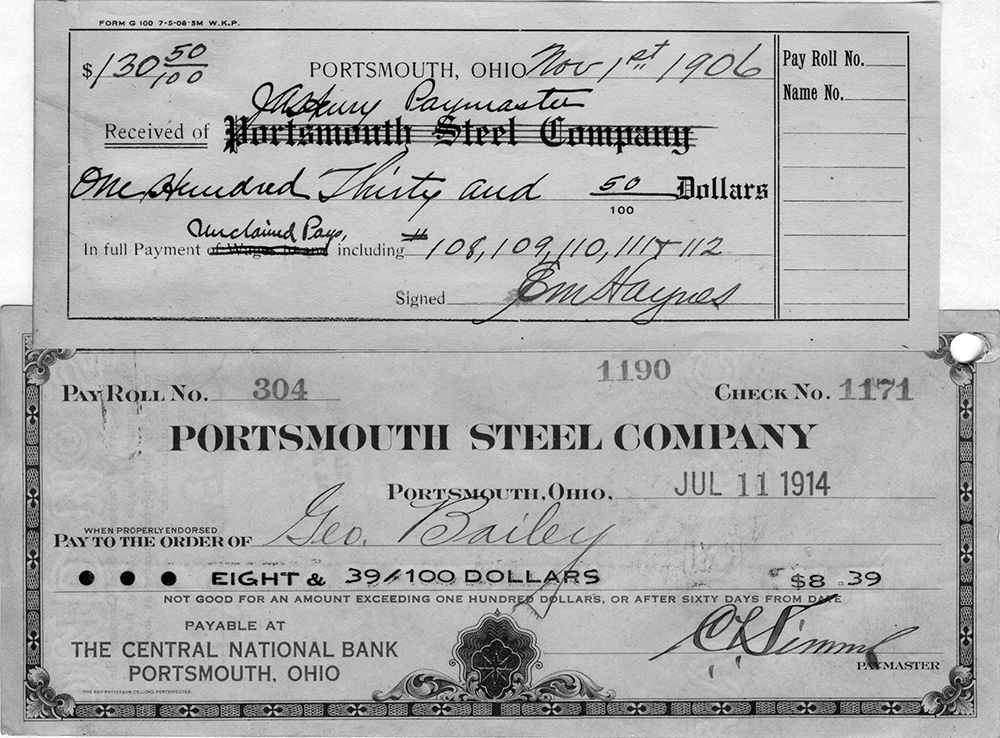 FORM G 100 7-5-06-5M W.K.P.
$130 50/100 PORTSMOUTH, OHIO Nov 1st 1906
Pay Roll No.
Name No.
Paymaster
Received of Portsmouth Steel Company
One Hundred Thirty and 50/100 Dollars
Unclaimed Pays,
In full Payment of Wages to and including # 108, 109, 110, 111 + 112
Signed EM Haynes
1190
PAY ROLL NO. 304 CHECK NO. 1171
PORTSMOUTH STEEL COMPANY
PORTSMOUTH, OHIO, JUL 11 1914
WHEN PROPERLY ENDORSED
PAY TO THE ORDER OF Geo. Bailey
EIGHT & 39/100 DOLLARS $8.39
NOT GOOD FOR AN AMOUNT EXCEEDING ONE HUNDRED DOLLARS, OR AFTER SIXTY DAYS FROM DATE
PAYABLE AT
THE CENTRAL NATIONAL BANK
PORTSMOUTH, OHIO
PAYMASTER